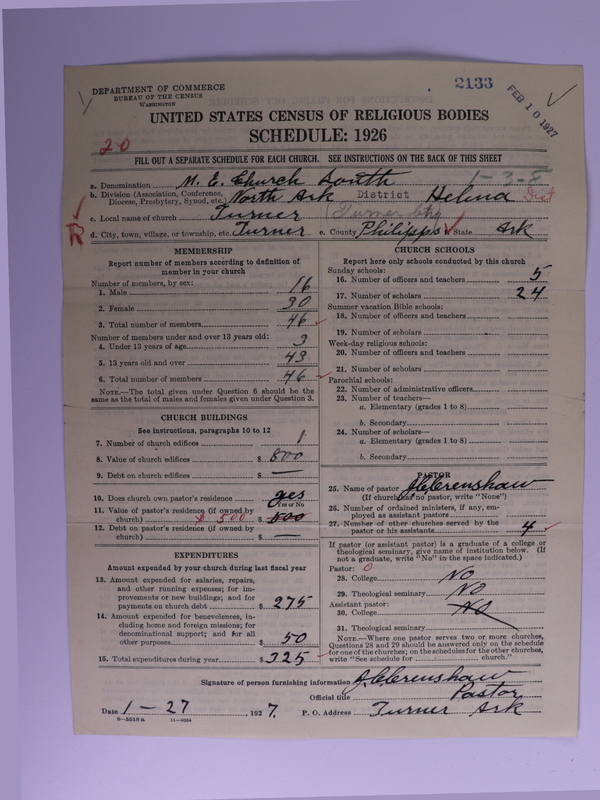 2133
FEB 10 1927
DEPARTMENT OF COMMERCE
BUREAU OF THE CENSUS
WASHINGTON
UNITED STATES CENSUS OF RELIGIOUS BODIES
SCHEDULE: 1926
20
FILL OUT A SEPARATE SCHEDULE FOR EACH CHURCH. SEE INSTRUCTIONS ON THE BACK OF THIS SHEET
a. Denomination M. E. Church South 1-3-8
b. Division (Association, Conference, Diocese, Presbytery, Synod, etc. North Ark District Helena Dist
c. Local name of church Turner Turner Chg
d. City, town, village, or township, etc. Turner e. County Philipps State Ark
MEMBERSHIP
Report number of members according to definition of
member in your church
Number of members, by sex:
1. Male 16
2. Female 30
3. Total number of members 46
Number of members under and over 13 years old:
4. Under 13 years of age 3
5. 13 years old and over 43
6. Total number of members 46
NOTE.—The total given under Question 6 should be the
same as the total of males and females given under Question 3.
CHURCH BUILDINGS
See instructions, paragraphs 10 to 12
7. Number of church edifices 1
8. Value of church edifices $ 800
9. Debt on church edifices $ —
10. Does church own pastor's residence yes
Yes or No
11. Value of pastor's residence (if owned by
church) $ 500 $ 500
12. Debt on pastor's residence (if owned by
church) $ —
EXPENDITURES
Amount expended by your church during last fiscal year
13. Amount expended for salaries, repairs,
and other running expenses; for im-
provements or new buildings; and for
payments on church debt $ 275
14. Amount expended for benevolences, in-
cluding home and foreign missions; for
denominational support; and for all
other purposes $ 50
15. Total expenditures during year $ 325
CHURCH SCHOOLS
Report here only schools conducted by this church
Sunday schools:
16. Number of officers and teachers 5
17. Number of scholars 24
Summer vacation Bible schools:
18. Number of officers and teachers
19. Number of scholars
Week-day religious schools:
20. Number of officers and teachers
21. Number of scholars
Parochial schools:
22. Number of administrative officers
23. Number of teachers—
a. Elementary (grades 1 to 8)
b. Secondary
24. Number of scholars—
a. Elementary (grades 1 to 8)
b. Secondary
PASTOR
25. Name of pastor J C Crenshaw
(If church has no pastor, write "None")
26. Number of ordained ministers, if any, em-
ployed as assistant pastors
27. Number of other churches served by the
pastor or his assistants 4
If pastor (or assistant pastor) is a graduate of a college or
theological seminary, give name of institution below. (If
not a graduate, write "No" in the space indicated.)
Pastor: 0
28. College No
29. Theological seminary No
Assistant pastor:
30. College No
31. Theological seminary
NOTE.—Where one pastor serves two or more churches,
Questions 28 and 29 should be answered only on the schedule
for one of the churches; on the schedules for the other churches,
write "See schedule for church."
Signature of person furnishing information J C Crenshaw
Official title Pastor
Date 1-27, 1927. P. O. Address Turner Ark
8-5518a 11-9054